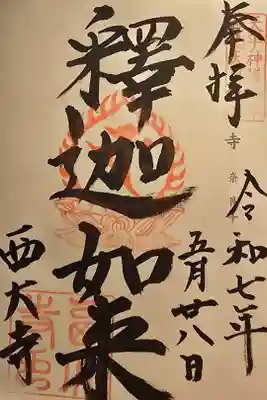 奉拝
令和七年
五月廿八日
釋迦如来
西大寺